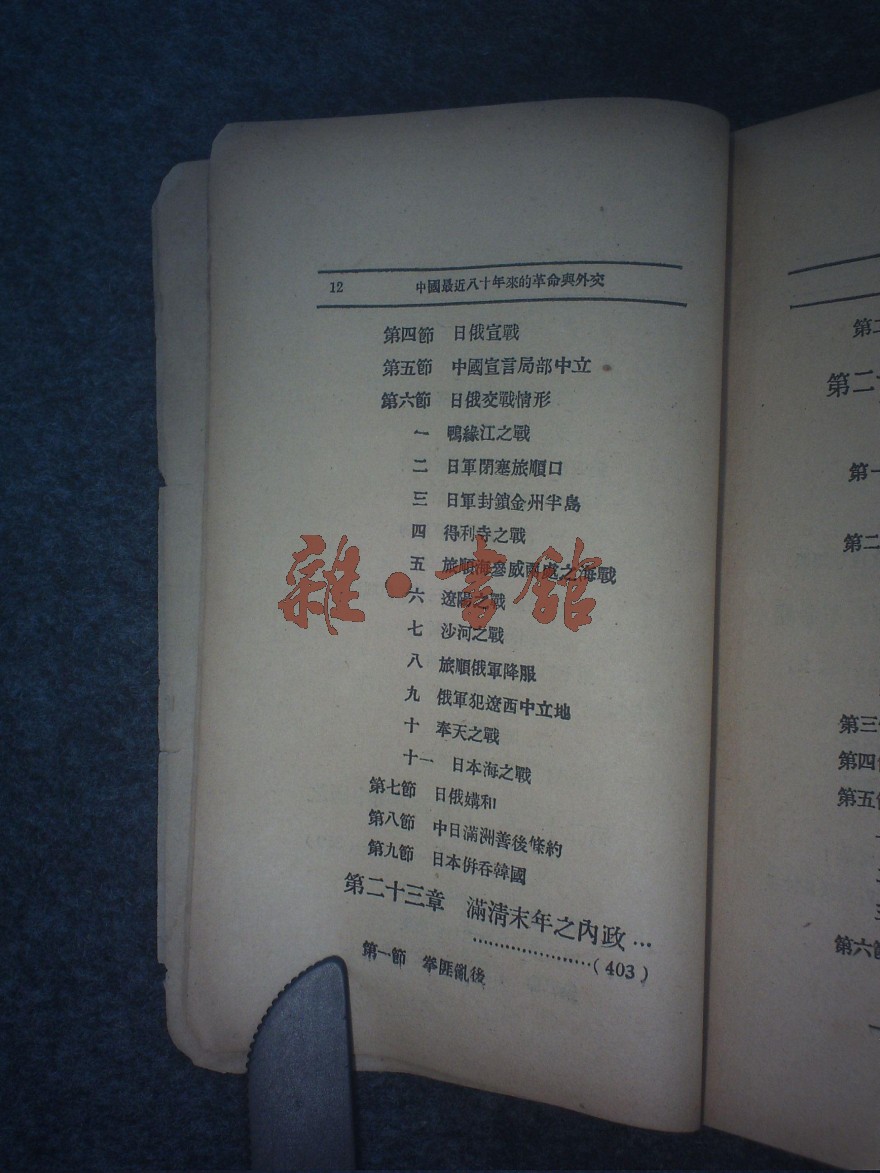 12 中國最近八十年來的革命與外交
第四節 日俄宣戰
第五節 中國宣言局部中立
第六節 日俄交戰情形
一 鴨綠江之戰
二 日軍閉塞旅順口
三 日軍封鎖金州半島
四 得利寺之戰
五 旅順海參威兩處之海戰
六 遼陽之戰
七 沙河之戰
八 旅順俄軍降服
九 俄軍犯遼西中立地
十 奉天之戰
十一 日本海之戰
第七節 日俄媾和
第八節 中日滿洲善後條約
第九節 日本併吞韓國
第二十三章 滿清末年之內政…
……………………(403)
第一節 拳匪亂後
雜·書館
第二
第二十
第一
第二
第三
第四
第五
第六節